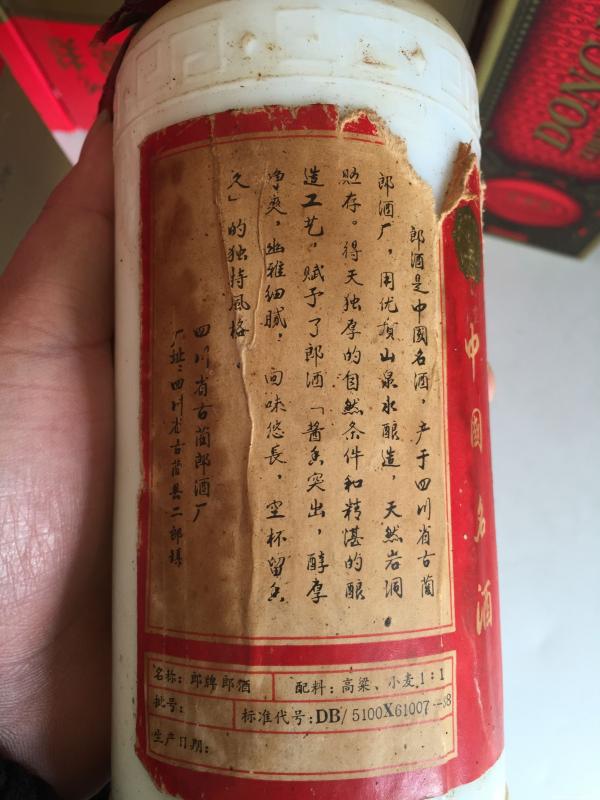 郎酒是中國名酒，产于四川省古蔺
郎酒厂，用优质山泉水酿造，天然岩洞
贮存。得天独厚的自然条件和精湛的酿
造工艺，赋予了郎酒「酱香突出，醇厚
净爽，幽雅细腻，回味悠長，空杯留香
久」的独特風格。
四川省古蔺郎酒厂
厂址：四川省古蔺县二郎镇
名称：郎牌郎酒
配料：高粱、小麦1：1
批号：
标准代号：DB/5100X61007-88
生产日期：
中國名酒
DONG